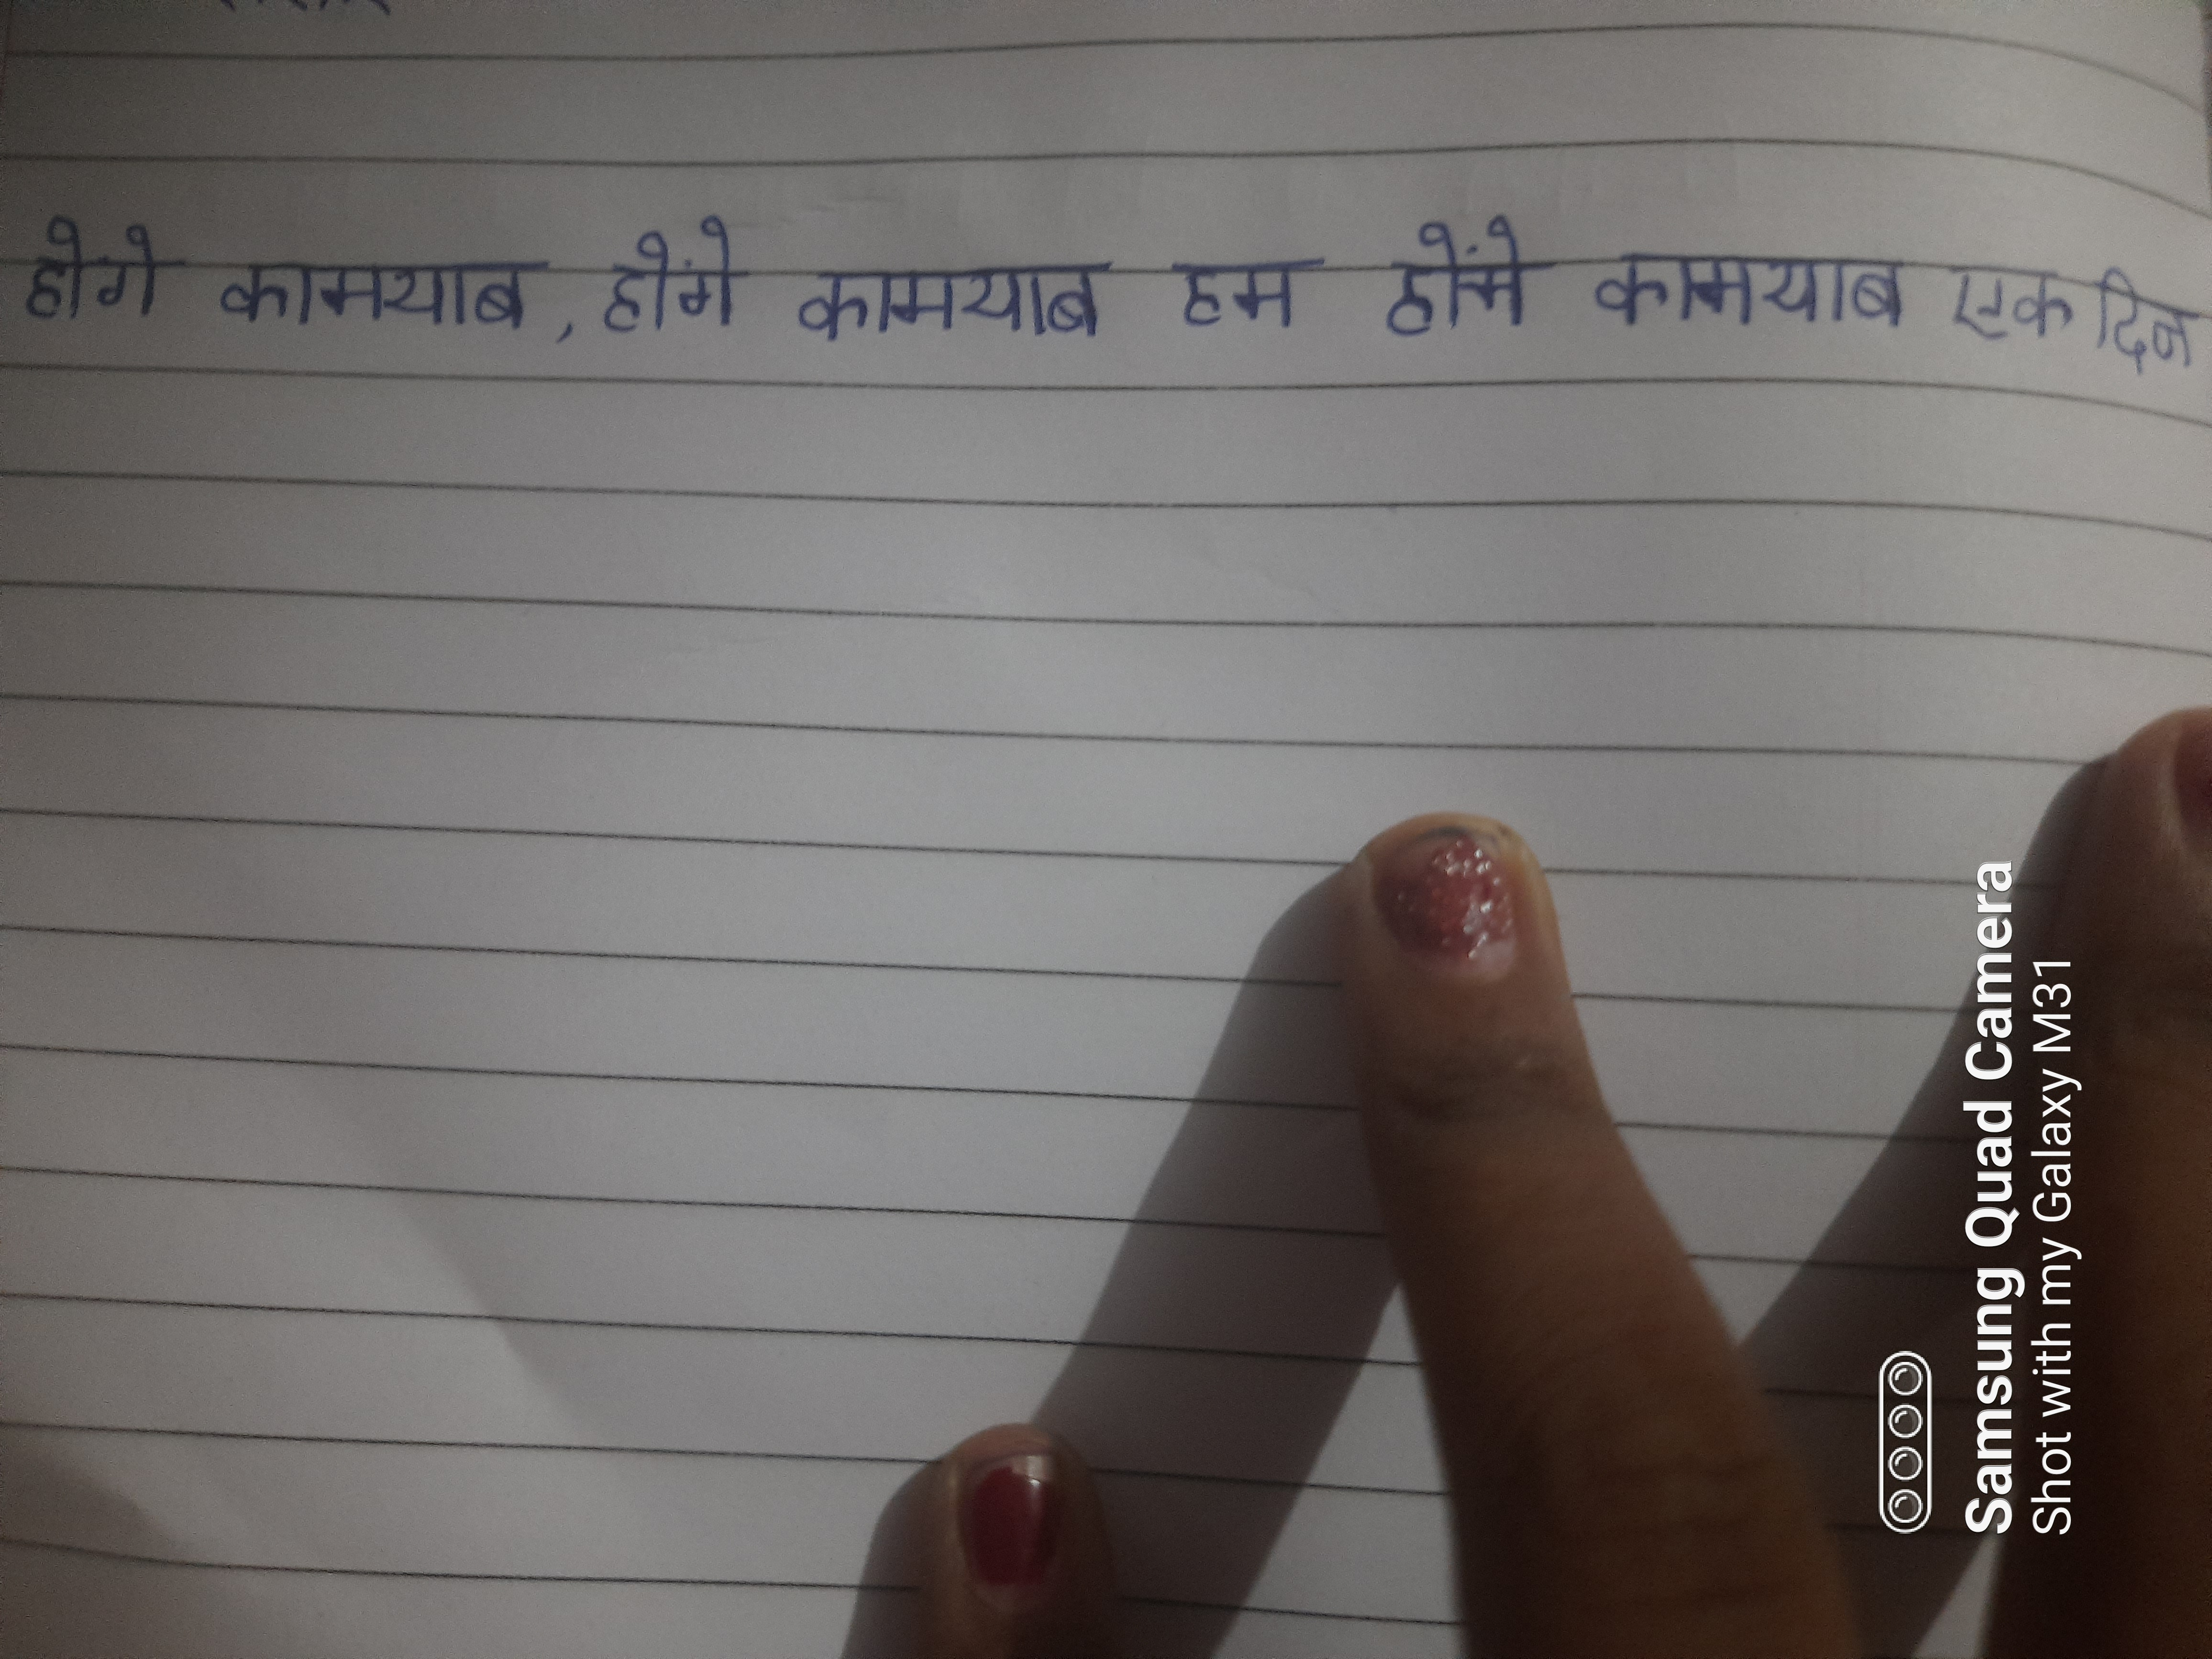 होगे कामयाब, होंगे कामयाब हम होंगे कामयाब एक दिन
Samsung Quad Camera
Shot with my Galaxy M31